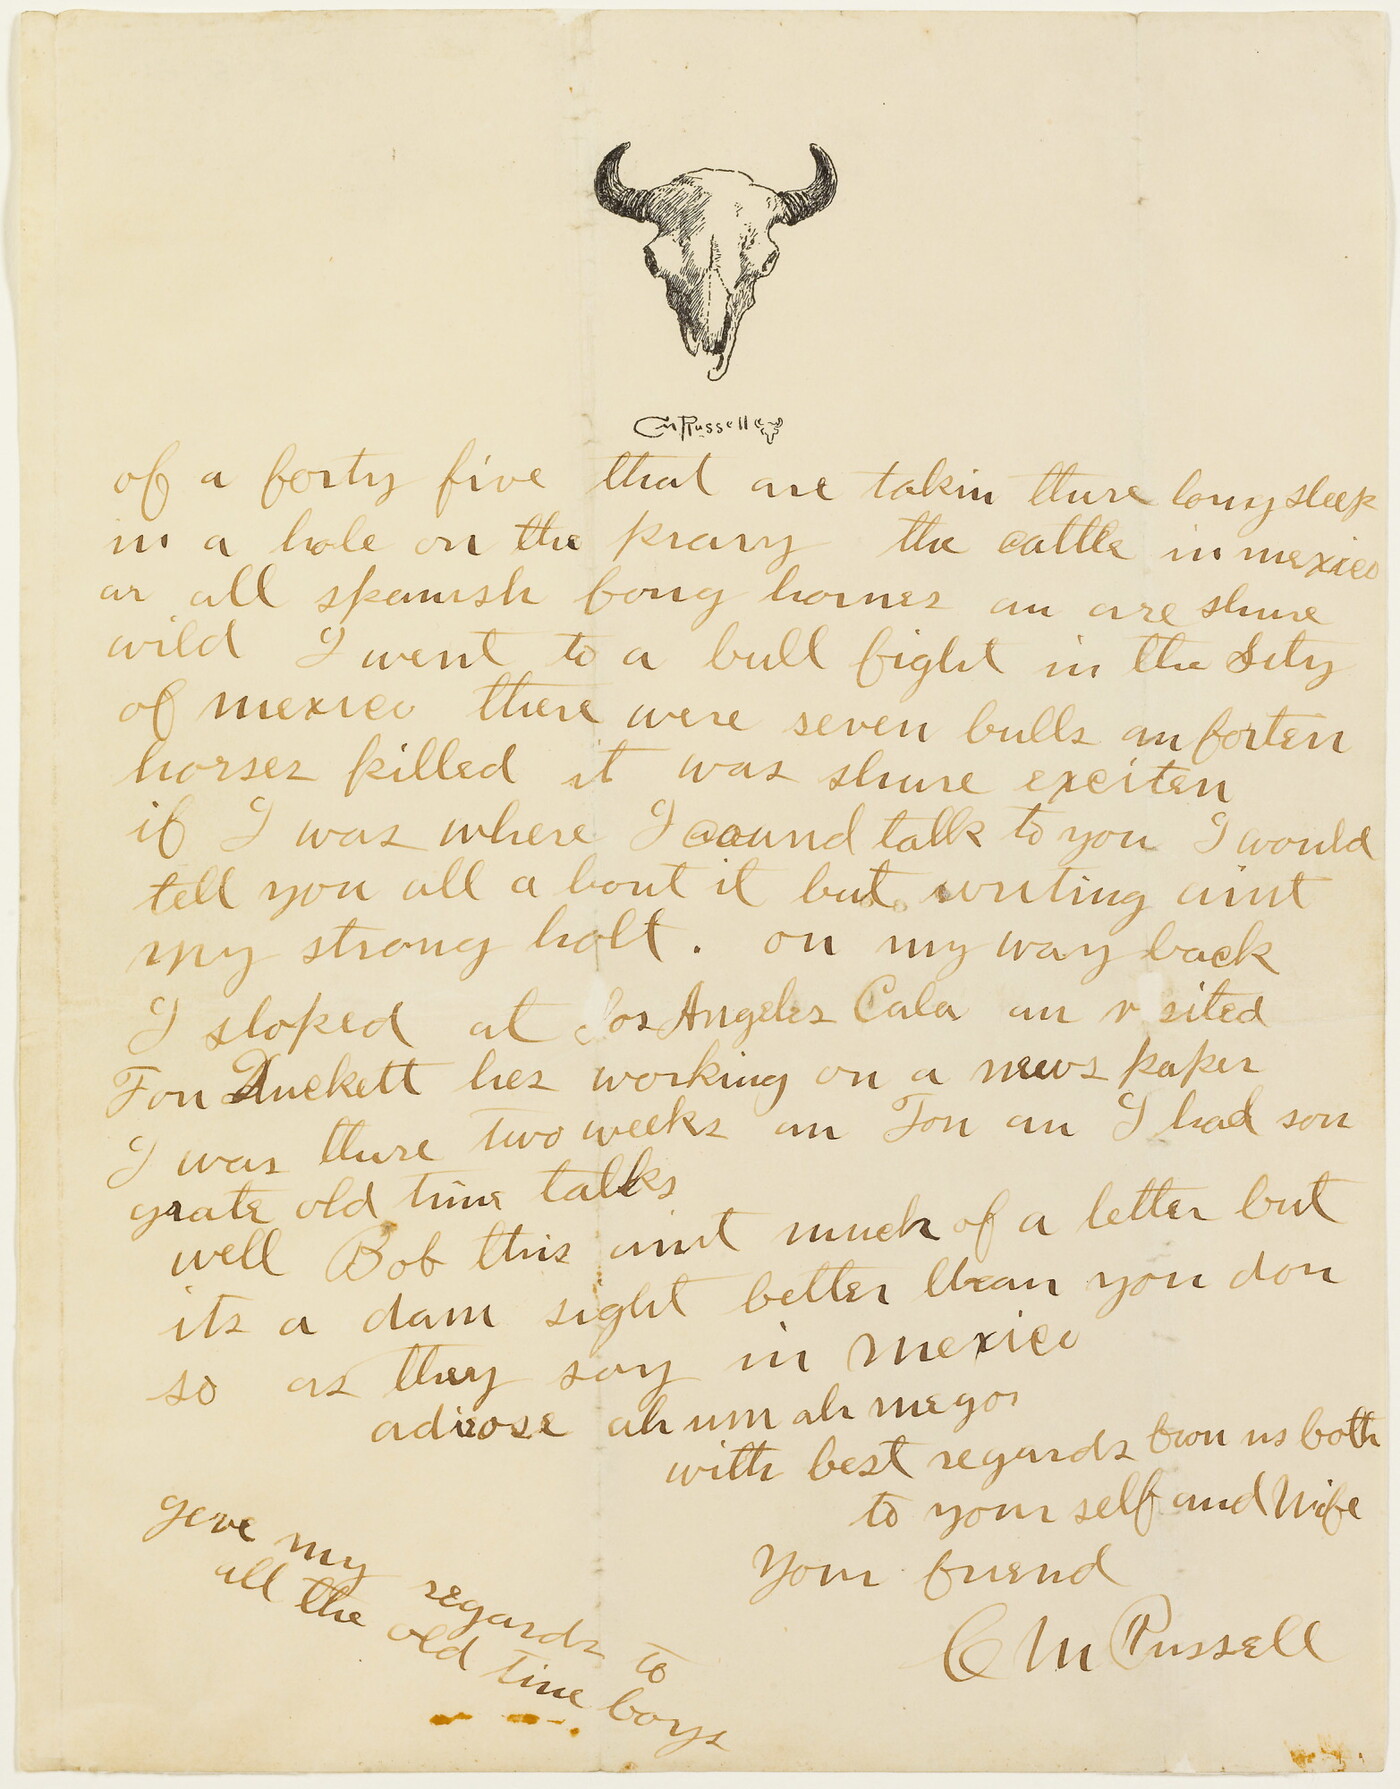 CM Russell
of a forty five that are takin thure long sleep
in a hole on the prary the cattle in mexico
ar all spanish long hornes an are shure
wild I went to a bull fight in the Sity
of mexico there were seven bulls an forten
horses killed it was shure exciten
if I was where I cound talk to you I would
tell you all a bout it but writing aint
my strong holt. on my way back
I stoped at Los Angeles Cala an v sited
Fon Duckett hes working on a news paper
I was thure two weeks an Fon an I had son
grate old time talks
well Bob this aint much of a letter but
its a dam sight better than you don
so as they say in mexico
adiose ah um ah megos
with best regards from us both
to your self and Wife
Your friend
C M Russell
geve my regards to
all the old time boys